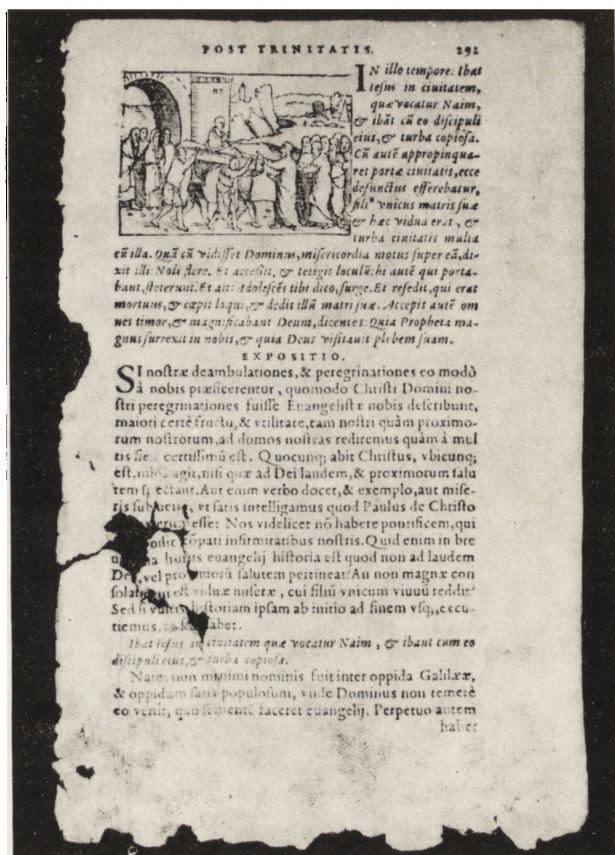 POST TRINITATIS. 292
IN illo tempore. Ibat
iesus in ciuitatem,
quæ vocatur Naim,
& ibāt cū eo discipuli
eius, & turba copiosa.
Cū autē appropinqua-
ret portæ ciuitatis, ecce
defunctus efferebatur,
fili⁹ vnicus matris suæ
& hæc vidua erat, &
turba ciuitatis multa
cū illa. Quā cū vidisset Dominus, misericordia motus super eā, di-
xit illi Noli flere. Et accessit, & tetigit loculū: hi autē qui porta-
bant, steterunt. Et ait: Adolescēs tibi dico, surge. Et resedit, qui erat
mortuus, & cœpit loqui, & dedit illū matri suæ. Accepit autē om
nes timor, & magnificabant Deum, dicentes: Quia Propheta ma-
gnus surrexit in nobis, & quia Deus visitauit plebem suam.
EXPOSITIO.
SI nostræ deambulationes, & peregrinationes eo modò
à nobis præficerentur, quomodo Christi Domini no-
stri peregrinationes fuisse Euangelistæ nobis describunt,
maiori certè fructu, & vtilitate, tam nostri quàm proximo-
rum nostrorum, ad domos nostras rediremus quàm à mul
tis certissimū est. Quocunq; abit Christus, vbicunq;
est, agit, nisi quæ ad Dei laudem, & proximorum salu
tem spectant. Aut enim verbo docet, & exemplo, aut mise-
ris vt satis intelligamus quod Paulus de Christo
esse: Nos videlicet nō habere pontificem, qui
cōpati infirmitatibus nostris. Quid enim in bre
huius euangelij historia est quod non ad laudem
Dei, vel salutem pertineat? An non magnæ con
est viduæ miseræ, cui filiū vnicum viuuū reddit?
Sed si historiam ipsam ab initio ad finem vsq;, excu-
tiemus,
Ibat iesus in ciuitatem quæ vocatur Naim, & ibant cum eo
discipuli eius, & turba copiosa.
Naim non minimi nominis fuit inter oppida Galilææ,
& oppidum satis populosum, vnde Dominus non temerè
eo venit, quo faceret euangelij. Perpetuo autem
habet